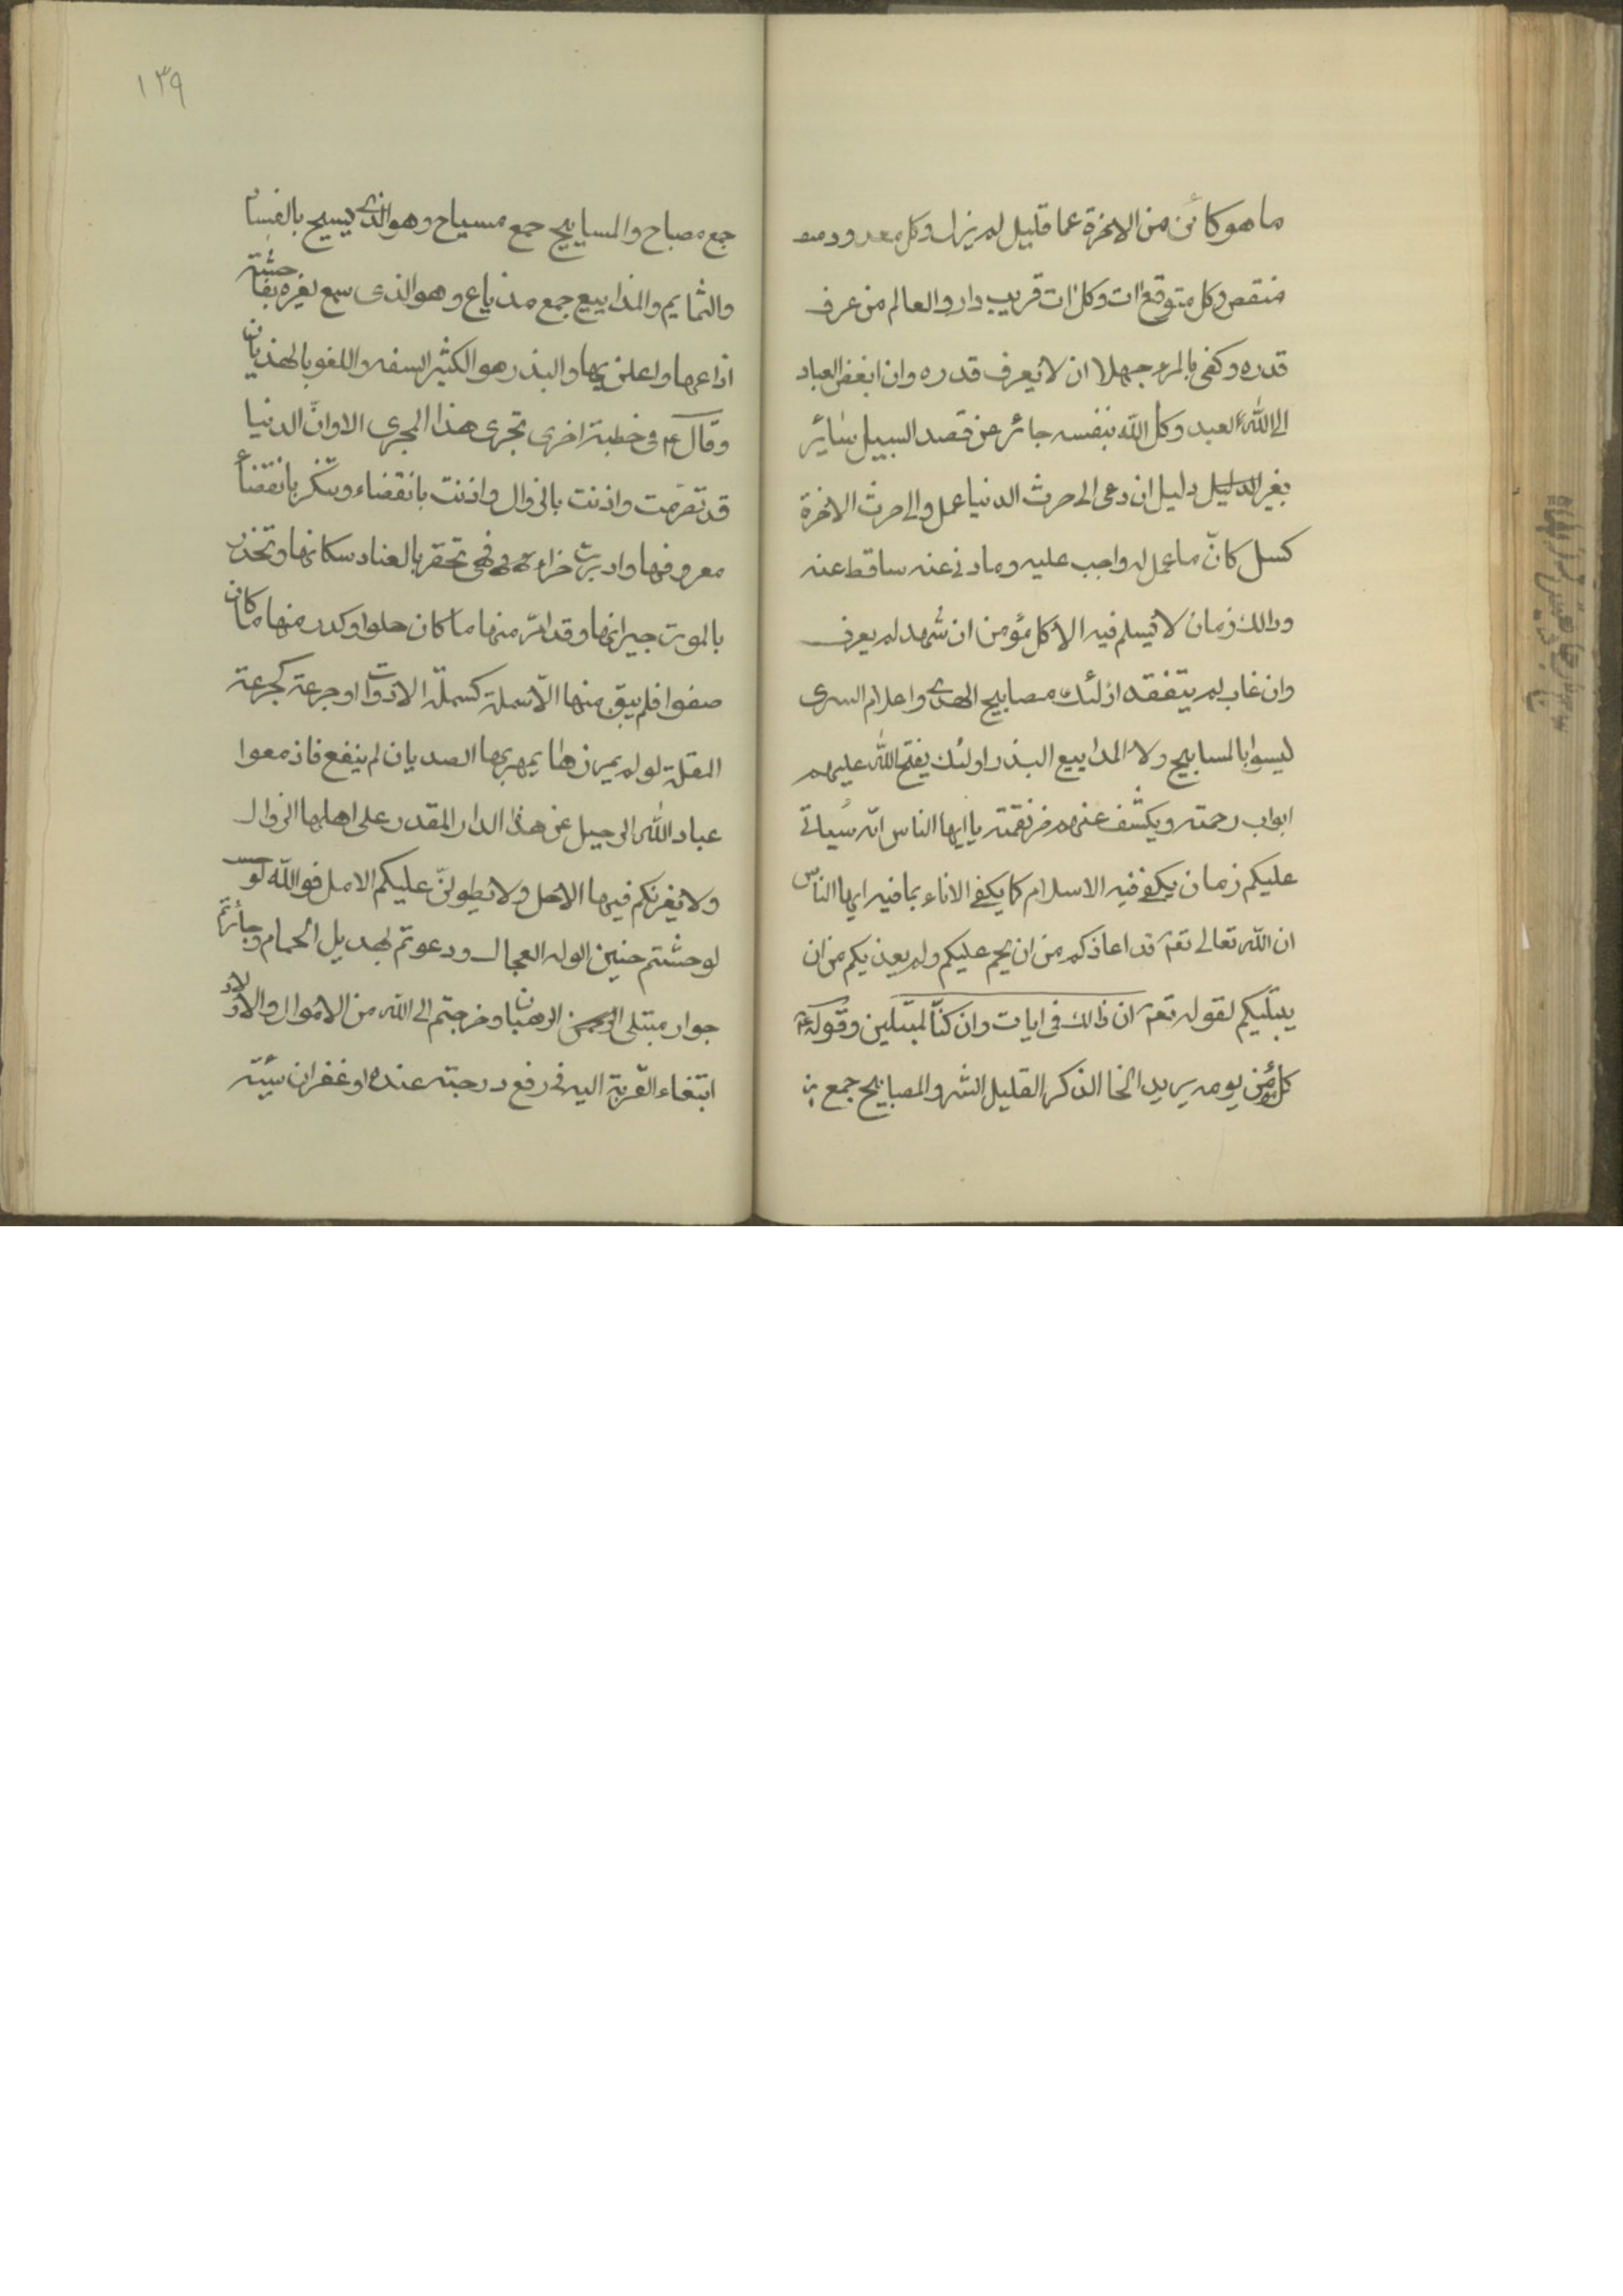 ما هو كائن من الاخرة عما قليل لم يزل وكل معدود منه
منقص وكل متوقع ات وكل ات قريب دار والعالم من عرف
قدره وكفى بالمرء جهلا ان لا يعرف قدره وان ابغض العباد
الى الله العبد وكل الله بنفسه جائر عن قصد السبيل سائر
بغير الدليل دليل ان دعى الى حرث الدنيا عمل والى حرث الاخرة
كسل كانّ ما عمل له واجب عليه وما دنى عنه ساقط عنه
وذالك زمان لا يسلم فيه الا كل مؤمن ان شهد لم يعرف
وان غاب لم يتفقد اولئك مصابيح الهدى واعلام السرى
ليسوا بالمسابيح ولا المذاييع البذر اولئك يفتح الله عليهم
ابواب رحمته ويكشف عنهم نقمته يا ايها الناس انّه سياتى
عليكم زمان يكفى فيه الاسلام كما يكفى الاناء بما فيه ايها الناس
ان الله تعالى قد اعاذكم من ان يحم عليكم ولم يعذيكم من ان
يبتليكم لقوله تعم ان ذالك فى ايات وان كنّا لمبتلين وقوله ع
كل مؤمن يومه يريد الخا الذكر القليل الشر والمصابيح جمع
١٣٩
جمع مصباح والمسابيح جمع مسياح وهو الذى يسيح بالفساد
والنمايم والمذاييع جمع مذياع وهو الذى سمع لغيره بفاحشة
اذاعها واعلن بها والبذر هو الكثير السفه واللغو بالهذيان
وقال ع فى خطبة اخرى تجرى هذا المجرى الا وانّ الدنيا
قد تصرمت واذنت بالزوال واذنت بانقضاء وتنكر بانقضاء
معروفها وادبرت فهى تحقر بالعناد سكانها وتحذر
بالموت جيرانها وقد امرّ منها ما كان حلوا وكدر منها ما كان
صفوا فلم يبق منها الّا سملة كسملة الادوات او جرعة كجرعة
المقلة لو لم يمزها الصديان لم ينفع فازمعوا
عباد الله الرحيل عن هذا الدار المقدر على اهلها الزوال
ولا يغرنكم فيها الاجل ولا يطولنّ عليكم الامل فو الله لو
لو حشتم حنين الوله العجال ودعوتم بهديل الحمام وجارتم
جوار مبتلى الرهبان وخرجتم الى الله من الاموال والاولاد
ابتغاء القربة اليه فى رفع درجته عنده او غفران سيئة